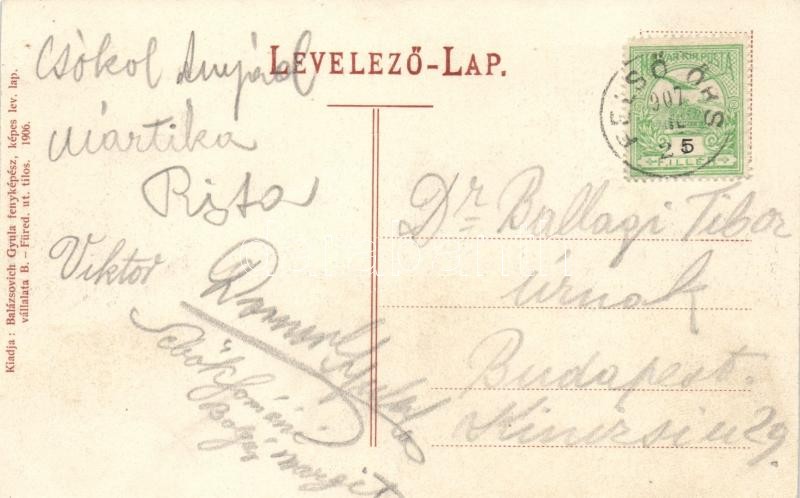 LEVELEZŐ-LAP.
Csókol Anyád
Mártika
Rista
Viktor
Margit
Dr Ballagi Tibor
úrnak
Budapest.
Kinizsi u 29.
MAGYAR KIR. POSTA
FELSŐ ÖRS
907
25
5
FILLÉR
Kiadja: Balázsovich Gyula fenyképész, képes lev. lap.
vállalata B.-Füred. ut. tilos. 1906.